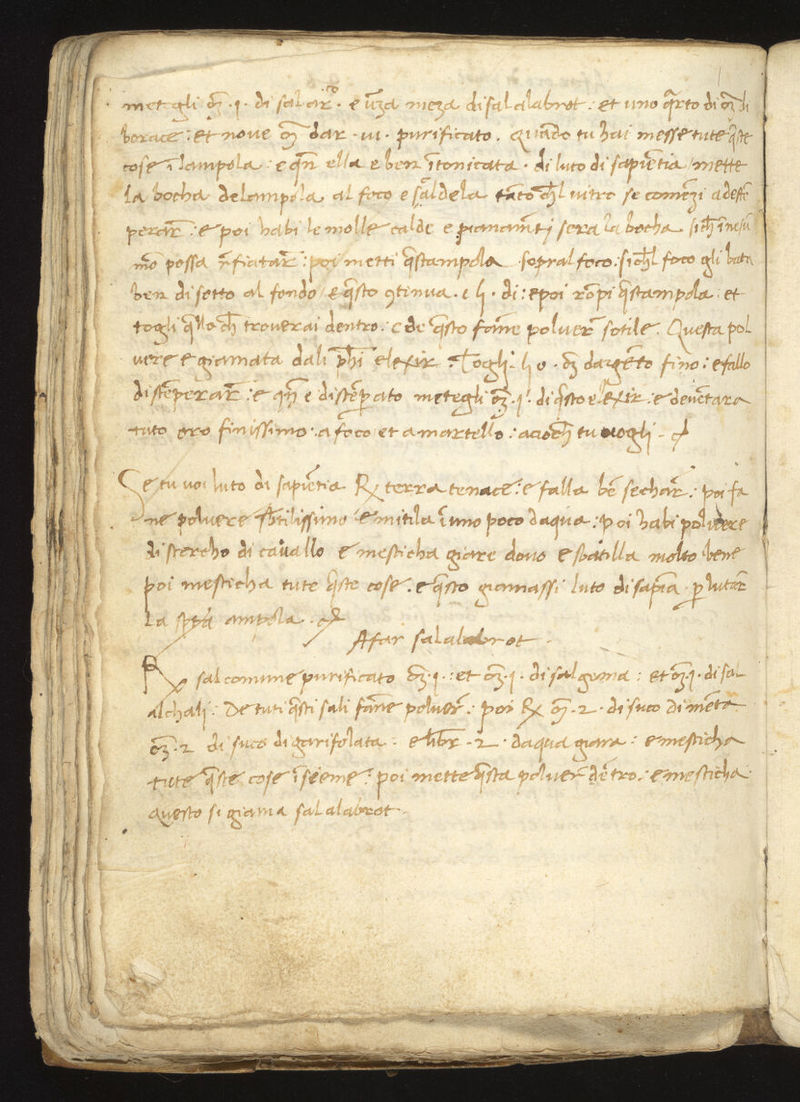 metegli oz̄ · i · di sal ar̄o · e ūza meza di sal alabrot : et uno q̄rto di oz̄ di
borace : et nove oz̄ dar · vi · purificato . Quādo tu hai messe tute q̄ste
cose ī lampola : e qn̄ ella e ben ītonicata · di luto di sapiētia / mette
la bocha delampola al foco e scāldela tāto ch̄l vitro se comēzi a destē
perar̄ : e poi habi le molle calde e pianamēti sera la bocha
possa n̄ fiatar̄ : poi metti q̄stampola sopral foco : sich̄l foco gli bata
ben di sotto al fondo / e q̄sto 9tinua · di : e poi rōpi q̄stampola et
togli q̄llo ch̄ troverai dentro : e de q̄sto fāne polver̄ sotile . Questa pol
vere e giamata dali ph̄i elexir . Togli · oz̄ dargēto fino : e fallo
distēperar̄ : e qn̄ e distēperato metegli oz̄ · i · di q̄sto elexir · e devētara
tuto oro finissimo · a foco et a martello : acioch̄ tu vogli ·
Se tu voi luto di sapiētia ℞ terra tenace : e falla bē sechar̄ : poi fa
ne polvere sb̄tilissimo e mitila ī uno poco daqua : poi habi polvere
di stercho di cavallo e mesticha giare dovo e sbatilla molto bene
poi mesticha tute q̄ste cose · e q̄sto giamassi luto di sapīa · p̱ lutar̄
la sp̄tā ampola ·
Afar sal alabrot ·
℞ sal comune purificato oz̄ · i · : et oz̄ · i · di sal gema : et oz̄ · i · di sal
alchali : De tuti q̄sti sali fāne polver̄ : poi ℞ oz̄ · 2 · di suco di mēta
oz̄ · 2 di suco di garifolata · e libr̄ · 2 · daqua giara : e mesticha
tute q̄ste cose īseeme : poi mette q̄sta polver̄ dētro : e mesticha
questo si giama sal alabrot ·